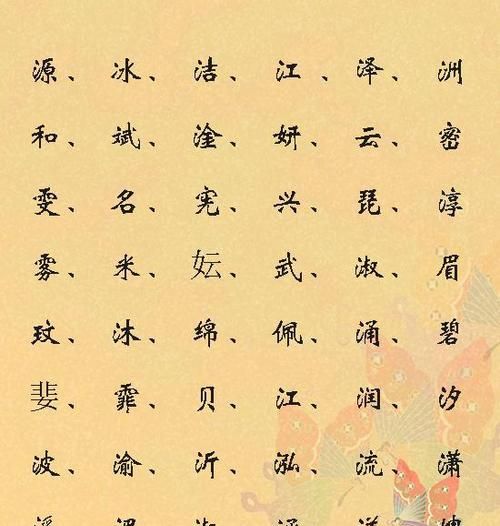 源、冰、洁、江、泽、洲
和、斌、淦、妍、云、密
雯、名、宪、兴、琵、淳
雾、米、妘、武、淑、眉
玟、沐、绵、佩、涌、碧
婓、霏、贝、江、润、汐
波、渝、沂、泓、流、潇